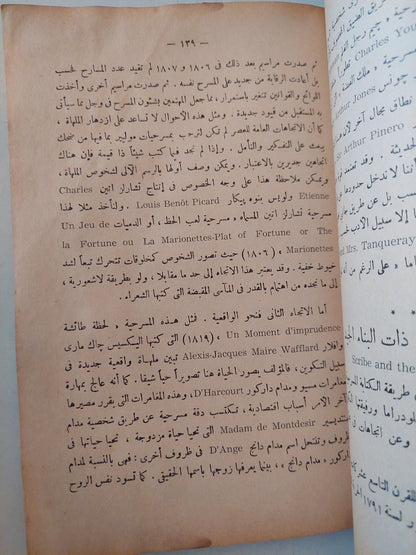 — ١٣٩ —
ثم صدرت مراسيم بعد ذلك فى ١٨٠٦ و ١٨٠٧ لم تقيد عدد المسارح فحسب
بل أعادت الرقابة من جديد على المسرح نفسه . ثم صدرت مراسيم أخرى وأخذت
اللوائح والقوانين تتغير باستمرار ، مما جعل المهتمين بشئون المسرح فى وجل مما سيأتى
به المستقبل من قيود جديدة . ومثل هذه الأحوال لا تساعد على ازدهار الملهاة ،
كما أن الاتجاهات العامة للعصر لم تكن لترحب بمسرحيات موليير بما فيها من ضحك
يبعث على التفكير والتأمل . وإذا لم نجد فيما كتب شيئاً ذا قيمة فإن هناك
اتجاهين جديرين بالاعتبار . ويمكن وصف أولهما بالرسم الآلى لشخوص الملهاة ،
ويمكن ملاحظة هذا على وجه الخصوص فى إنتاج تشارلز اتين Charles
Etienne ولويس بنوه بيكار Louis Benôt Picard . ولنأخذ مثلا لهذا
مسرحية تشارلز اتين المسماه « مسرحية لعب الحظ ، أو الدميات Un Jeu de
la Fortune ou La Marionettes-Plat of Fortune or The
Marionettes ، (١٨٠٦) حيث تصور الشخوص كمخلوقات تتحرك تبعاً لشد
خيوط خفية . وقد يعتبر هذا الاتجاه إلى حد ما مقابلا ، ولو بطريقة لاشعورية ،
إلى ما نجده من اهتمام بالقدر فى المآسى المقبضة التى كتبها الشعراء .
أما الاتجاه الثانى فنحو الواقعية . فمثل هذه المسرحية « لحظة طائشة
Un Moment d'imprudence ، (١٨١٩) التى كتبها اليكسيس جاك مارى
وافلار Alexis-Jacques Maire Wafflard تبين ملهاة واقعية جديدة فى
سبيل التكوين . فالمؤلف يصور الحياة هنا تصويراً حياً شيقا . كما أنه عالج بمهارة
مغامرات مسيو ومدام داركور D'Harcourt ، وهذه المغامرات التى يقرر مصيرها
آخر الأمر أسباب اقتصادية ، تكتسب دقة مسرحية عن طريق شخصية مدام
منتديسير Madam de Montdesir التى تحيا حياة مزدوجة ، تحيا حياتها فى
ظروف وتنتحل اسم مدام دانج D'Ange فى ظروف أخرى : فهى بالنسبة لمدام
داركور « مدام دانج » ، بينما يعرفها زوجها باسمها الحقيقى . كما تسود نفس الروح
Charles You
جونس Arthur Jones
Sir Arthur Pinero
الحديثة . وقد
nd Mrs. Tanqueray
، على الرغم من أنه
ذات البناء
Scribe and the
لسنة ١٧٩١